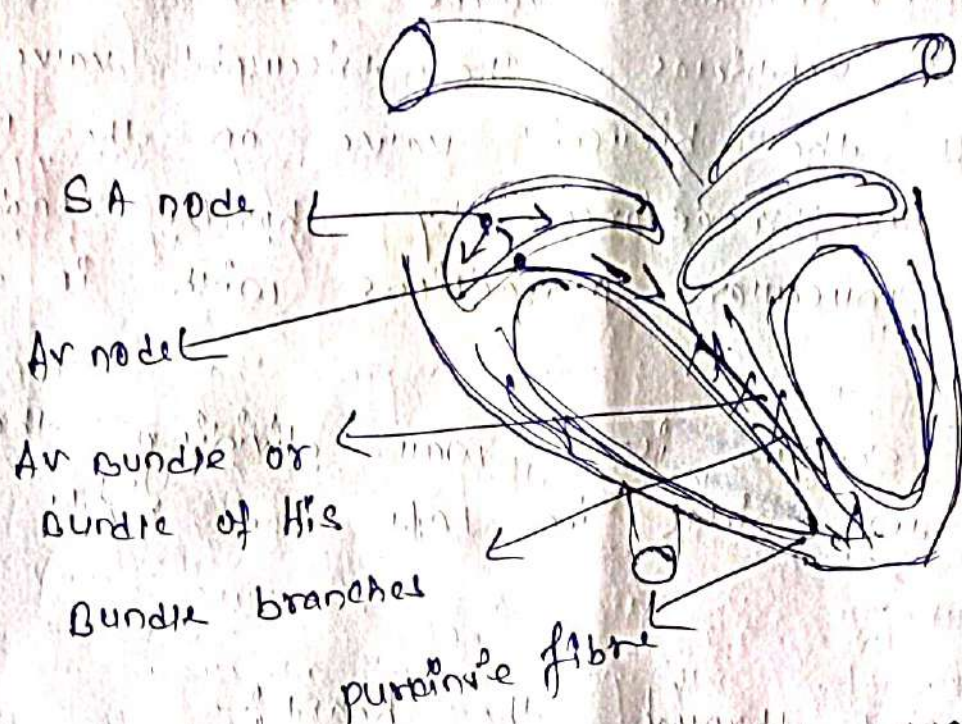 SA node
Av node
Av Bundle or
Bundle of His
Bundle branches
purpinvie fibre